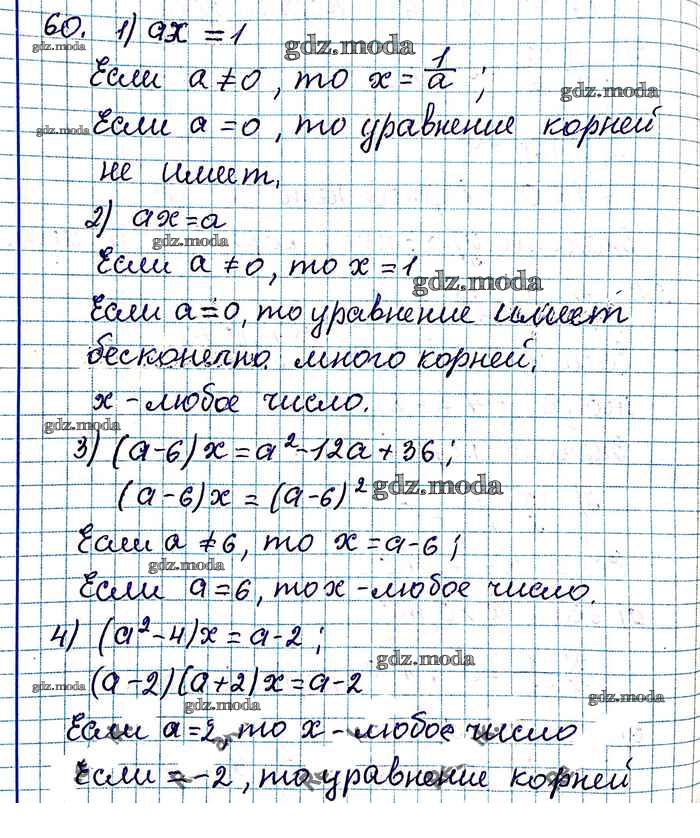 60. 1) ax = 1
gdz.moda gdz.moda
Если a ≠ 0, то x = 1/a;
gdz.moda
gdz.moda Если a = 0, то уравнение корней
не имеет.
2) ax = a
gdz.moda
Если a ≠ 0, то x = 1
gdz.moda
Если a = 0, то уравнение имеет
бесконечно много корней.
x - любое число.
gdz.moda
3) (a-6)x = a² - 12a + 36;
(a-6)x = (a-6)² gdz.moda
Если a ≠ 6, то x = a-6;
gdz.moda
Если a = 6, то x - любое число.
4) (a² - 4)x = a - 2;
gdz.moda
gdz.moda (a-2)(a+2)x = a-2
gdz.moda gdz.moda
Если a = 2, то x - любое число
Если = -2, то уравнение корней